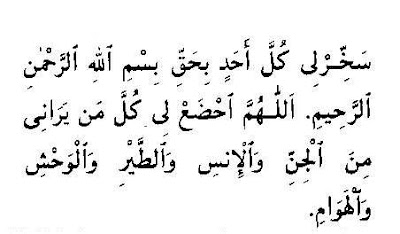 سَخِّرْلِى كُلَّ أَحَدٍ بِحَقِّ بِسْمِ ٱللهِ ٱلرَّحْمٰنِ
ٱلرَّحِيمِ. ٱَللّٰهُمَّ ٱحْضَعْ لِى كُلَّ مَن يَرَانِى
مِنَ ٱلْجِنِّ وَٱلْإِنسِ وَٱلطَّيْرِ وَٱلْوَحْشِ
وَٱلْهَوَامِ.